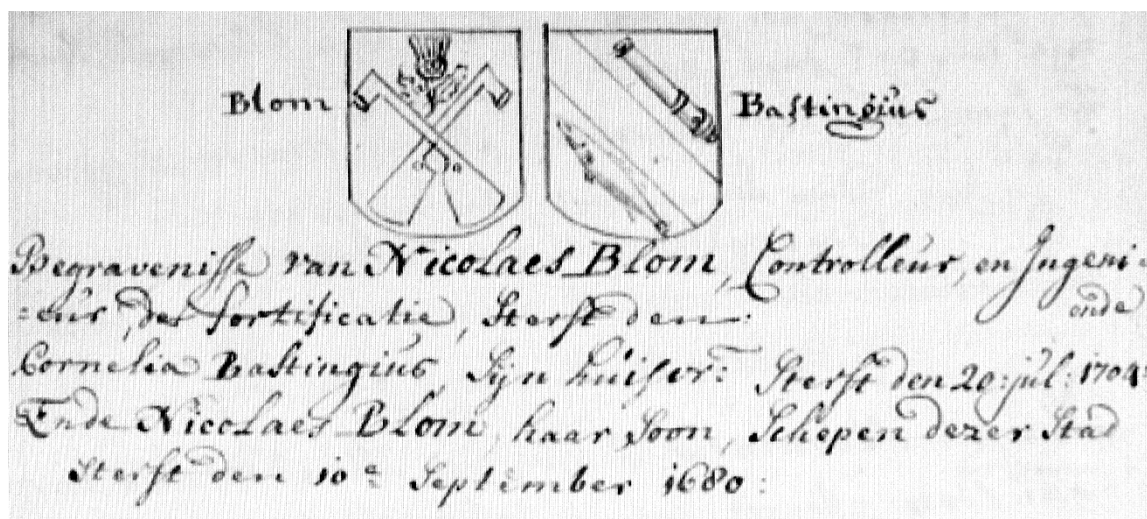 Blom
Bastingius
Begravenisse van Nicolaes Blom, Controlleur, en Ingeni-
=eur, der fortificatie, Sterft den: ende
Cornelia Bastingius, Sijn huisvr: Sterft den 20: jul: 1704:
Ende Nicolaes Blom, haar Soon, Schepen dezer Stad
Sterft den 10e September 1680: